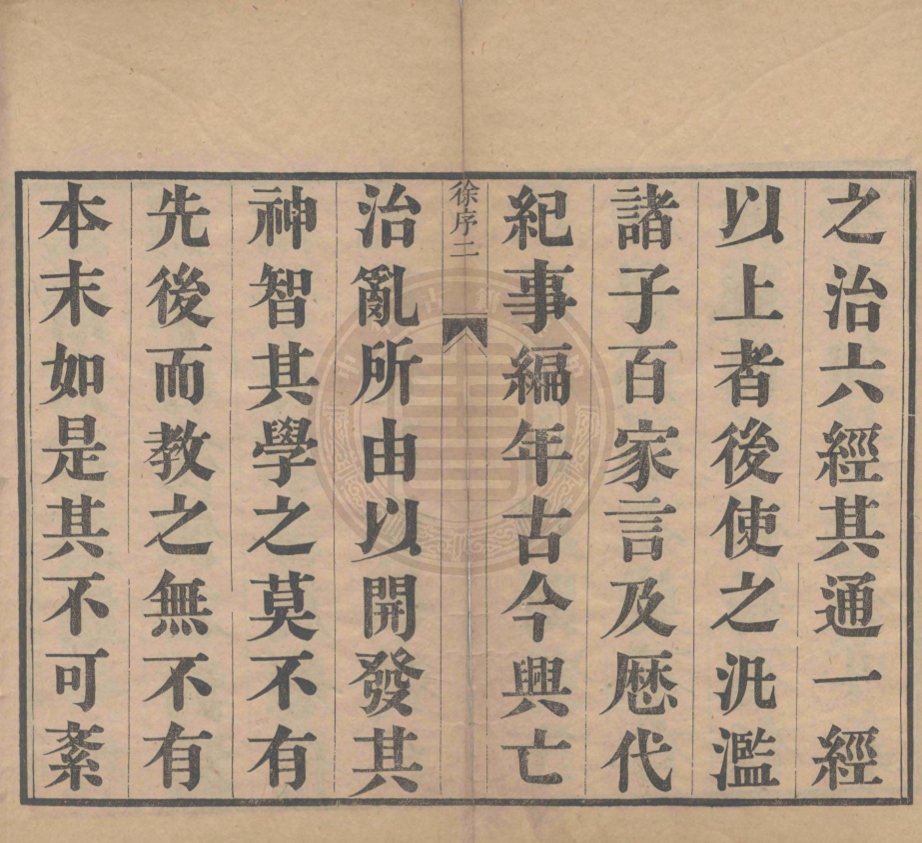 之治六經其通一經
以上者後使之汎濫
諸子百家言及歴代
紀事編年古今興亡
徐序二
治亂所由以開發其
神智其學之莫不有
先後而教之無不有
本末如是其不可紊